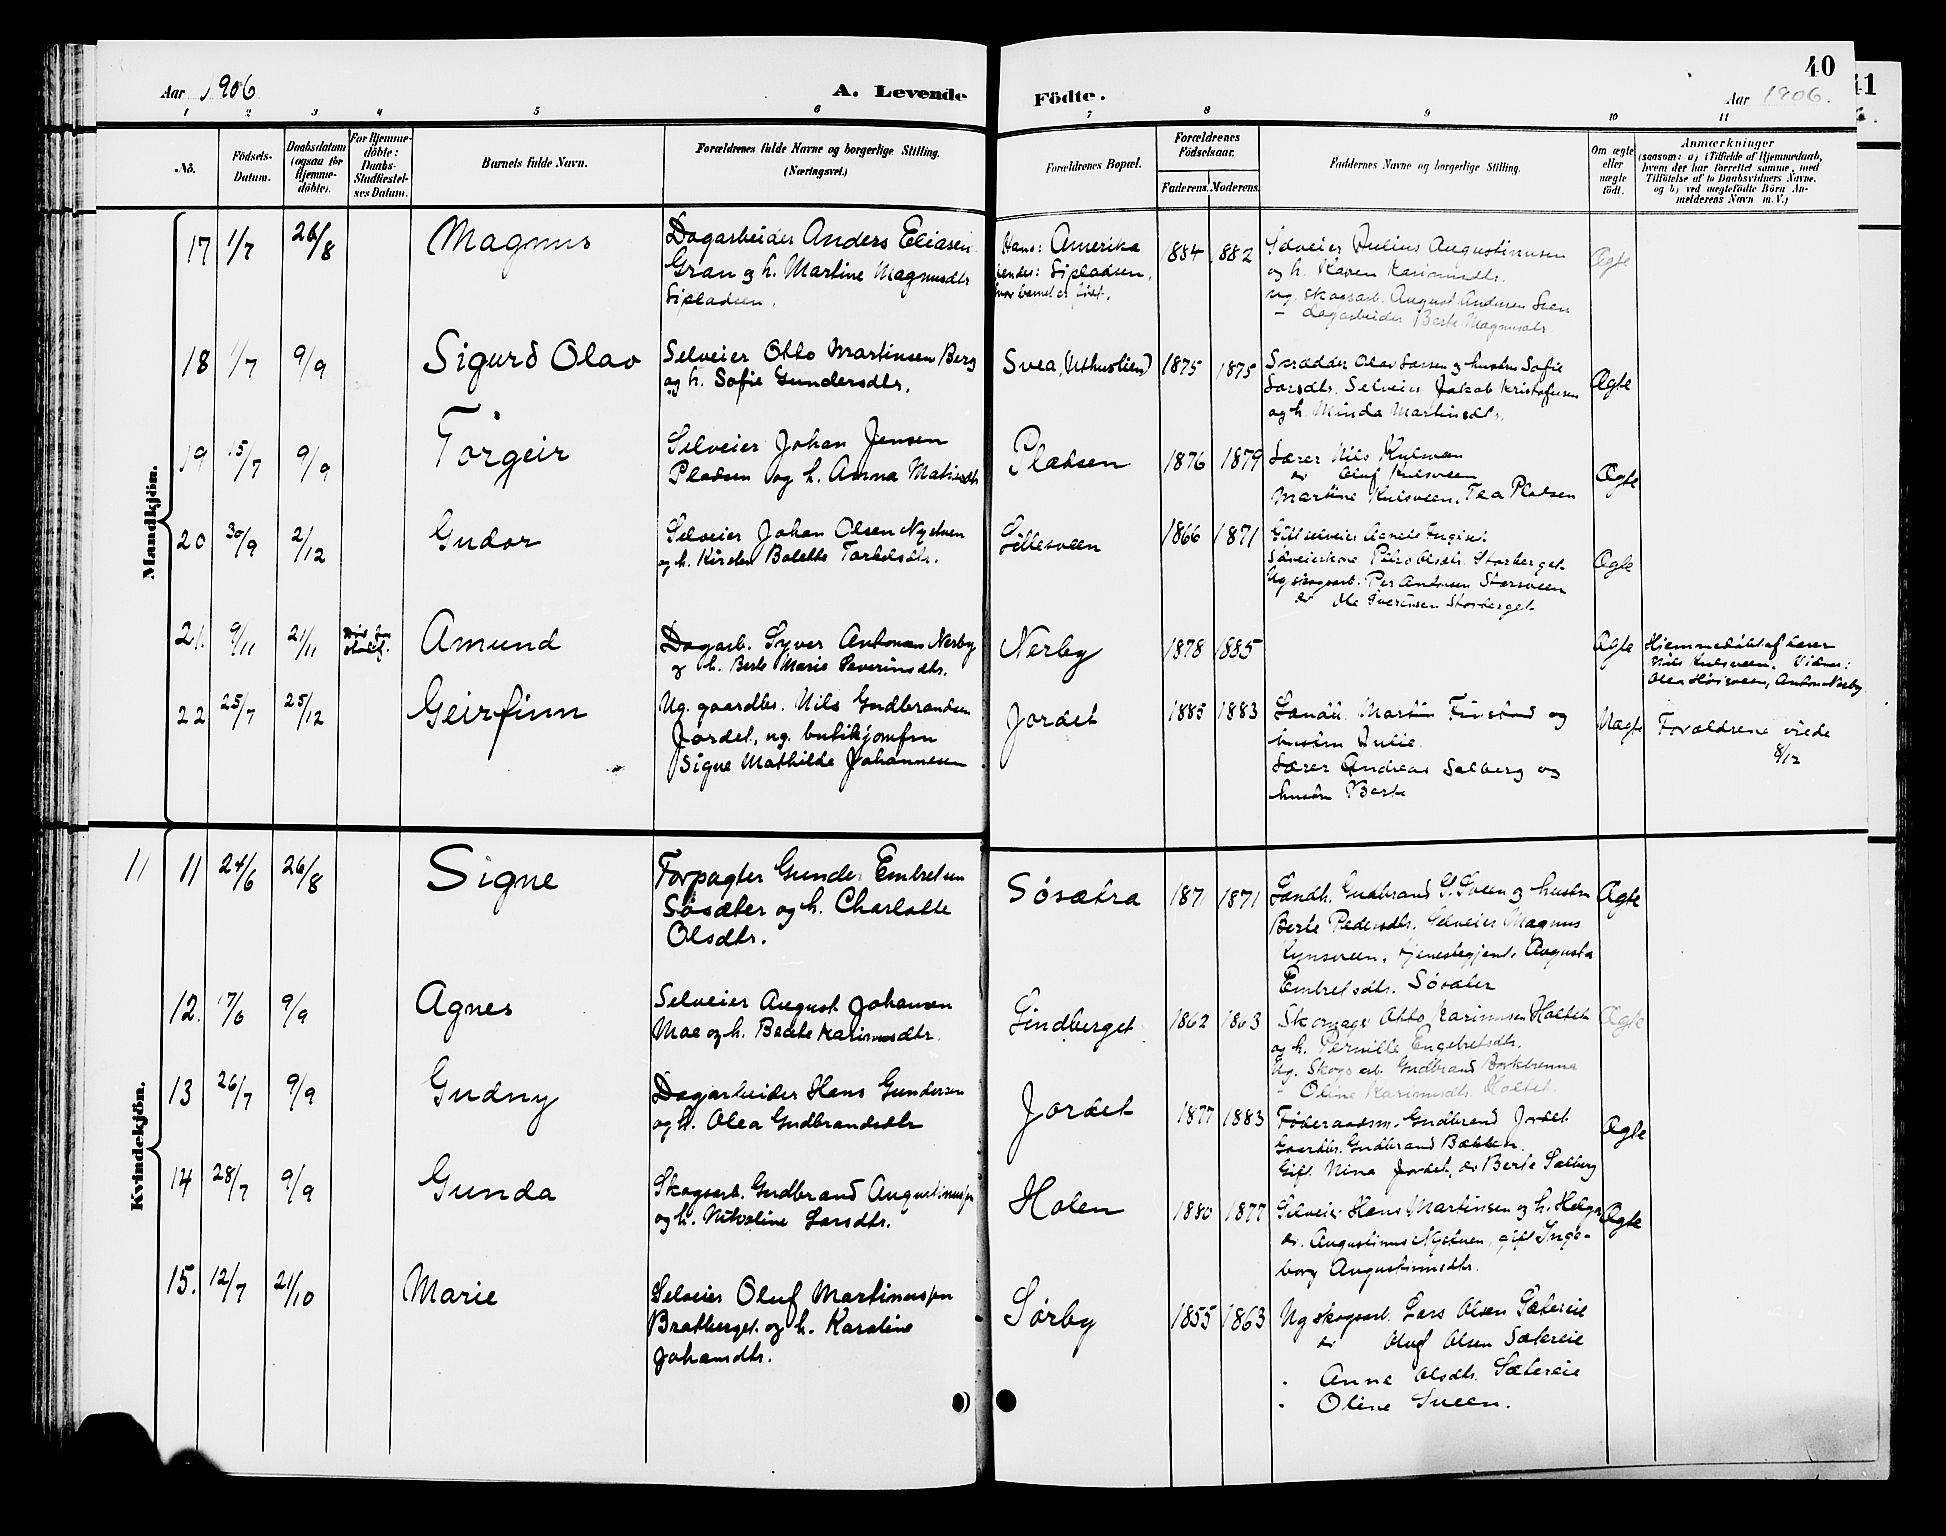 Aar 1906
A. Levende
Födte.
40
Aar 1906.
41
1 2 3 4 5 6 7 8 9 10 11
No.
Födsels-Datum.
Daabsdatum (ogsaa for Hjemme-döbte).
For Hjemme-döbte: Daabs-Stadfæstel-ses Datum.
Barnets fulde Navn.
Forældrenes fulde Navne og borgerlige Stilling.
(Næringsvei.)
Forældrenes Bopæl.
Forældrenes Födselsaar.
Faderens. Moderens.
Faddernes Navne og borgerlige Stilling.
Om ægte eller uægte födt.
Anmærkninger
(saasom: a) i Tilfælde af Hjemmedaab,
hvem der har forrettet samme, med
Tilföielse af to Daabsvidners Navne,
og b) ved uægtefödte Börn An-
melderens Navn m. V.)
Mandkjön.
17 1/7 26/8 Magnus
Dagarbeider Anders Eliasen
Gran og h. Martine Magnusdtr
Lipladsen.
Hans: Amerika
hendes: Lipladsen,
hvor barnet er født.
1884 1882
Selveier Julius Augustinusen
og h. Karen Karinusdtr.
ug. skogsarb. August Andersen
- dagarbeider Berte Magnusdtr
Ægte
18 1/7 9/9 Sigurd Olav
Selveier Otto Martinsen Berg
og h. Sofie Gundersdtr.
Svea, (Uthuslien)
1875 1875
Skrædder Olav Larsen og hustru Sofie
Larsdtr. Selveier Jakob Kristofersen
og h. Minda Martinsdtr.
Ægte
19 15/7 9/9 Torgeir
Selveier Johan Jensen
Pladsen og h. Anna
Pladsen
1876 1879
Lærer Nils Kulsveen
do Oluf Kulsveen
Martine Kulsveen, Tea Pladsen
Ægte
20 30/9 2/12 Gudor
Selveier Johan Olsen Nyetuen
og h. Kirsten Bolette Torkelsdtr.
Lillesveen
1866 1871
Gift selveier
Selveierkone Petra Olsdtr. Storberget
Ug skogsarb. Per Antonsen Storsveen
do Ole Iversen Storberget
Ægte
21. 9/11 21/11 Amund
Dagarb. Syver Antonsen Nerby
og h. Berte Marie Severinsdtr.
Nerby
1878 1885
Ægte
Hjemmedøbt af lærer
Nils Kulsveen. Vidner:
Olea, Anton Nerby
22 25/7 25/12 Geirfinn
Ug. gaardbr. Nils Gudbrandsen
Jordet, ug. butikjomfru
Signe Mathilde Johannesen
Jordet
1885 1883
Landh. Martin og
hustru Julie.
Lærer Andreas Salberg og
hustru Berte
Uægte
Forældrene viede
8/12
Kvindekjön.
11 11 24/6 26/8 Signe
Forpagter Gunder Embretsen
Søsæter og h. Charlotte
Olsdtr.
Søsætra
187 1871
Landh. Gudbrand G. Sveen og hustru
Berte Pedersdtr. Selveier Magnus
Kynsveen, tjenestegjente Augusta
Embretsdtr. Søsæter
Ægte
12. 17/6 9/9 Agnes
Selveier August Johansen
Moe og h. Beate Karinusdtr.
Lindberget
1862 1863
Skomager Otto Karinusen Holtet
og h. Pernille Engebretsdtr.
Ug. Skogsarb. Gudbrand Borkbrenna
- Oline Karinusdtr. Holtet.
Ægte
13 26/7 9/9 Gudny
Dagarbeider Hans Gundersen
og h. Olea Gudbrandsdtr
Jordet
1877 1883
Føderaadsm. Gudbrand Jordet
Gaardbr. Gudbrand Bækken
Gift Nina Jordet, do Berte Salberg
Ægte
14 28/7 9/9 Gunda
Skogsarb. Gudbrand Augustinusen
og h. Nikoline Larsdtr.
Holen
1880 1877
Selveier Hans Martinsen og h. Helga
do. Augustinus Nyetuen, gift Inge-
borg Augustinusdtr.
Ægte
15. 12/7 21/10 Marie
Selveier Oluf Martinusen
Bratberget og h. Karoline
Johansdtr.
Sørby
1855 1863
Ug skogsarb. Lars Olsen Sætereie
do Oluf Olsen Sætereie
- Anne Olsdtr. Sætereie
- Oline Sveen.